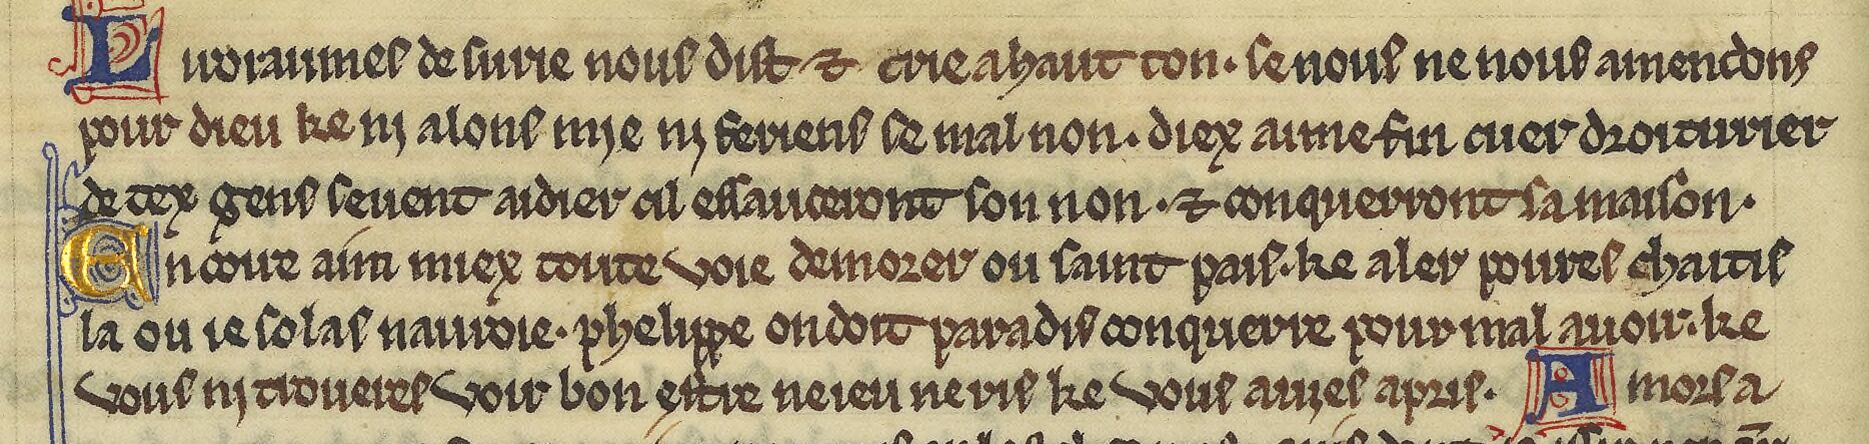 Li roiaumes de surie nous dist & crie a haut ton. se nous ne nous amendons
pour dieu ke nj alons mie nj feriens se mal non. diex aime fin cuer droiturier
de tex gens seuent aidier cil essauceront son non. & conquerront sa maison.
Encore aim miex toute voie demorer ou saint pais. ke aler poures chaitis
la ou ie solas nauroie. phelippe on doit paradis conquerre pour mal auoir. ke
vous nj troueres voir bon estre ne ieu ne ris ke vous auies apris. Amors a